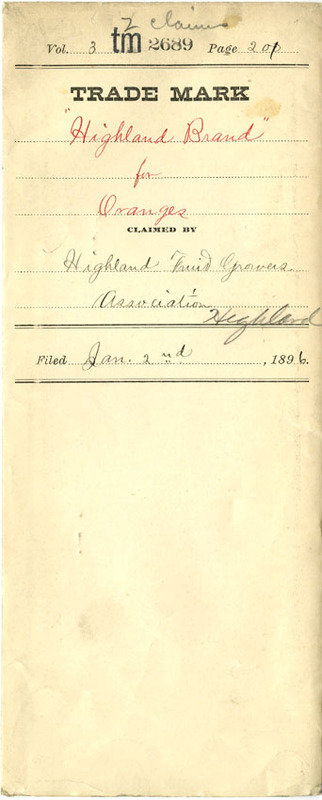 2 claims
Vol. 3 tm 2689 Page 201
TRADE MARK
"Highland Brand"
for
Oranges
CLAIMED BY
Highland Fruit Growers
Association
Highland
Filed Jan. 2nd, 1896.